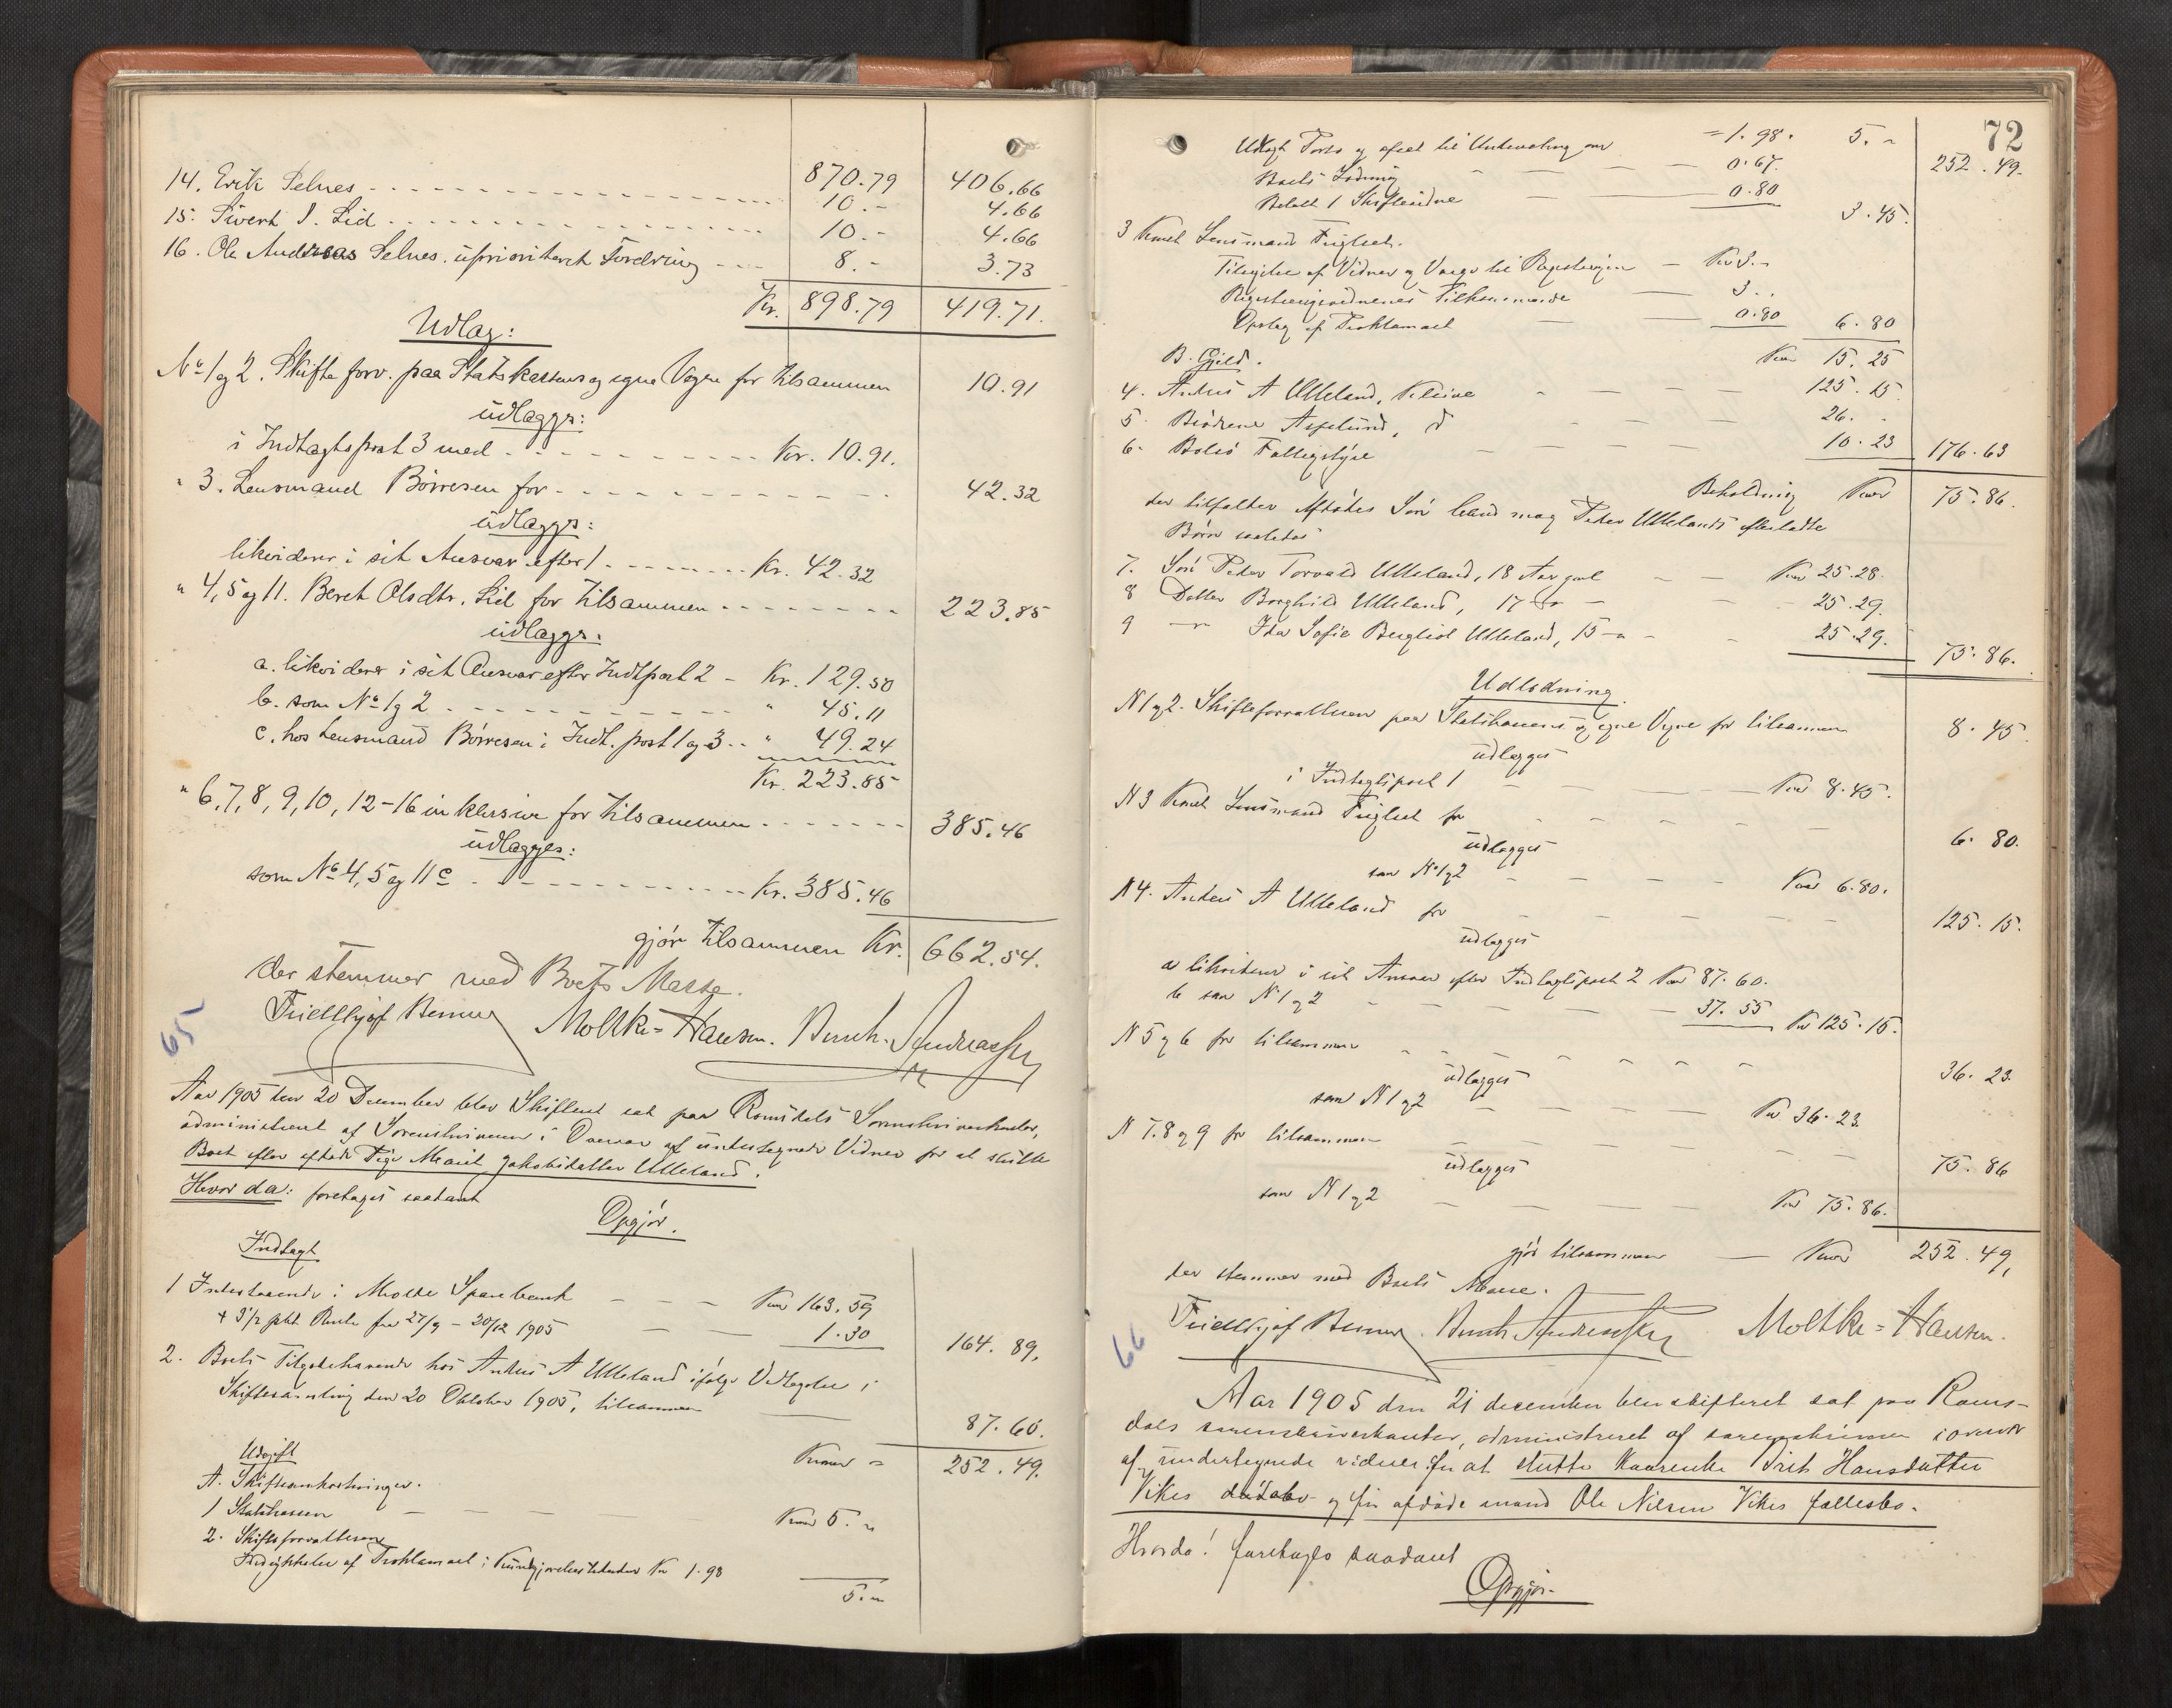 870.79 406.66
14. Erik Selnes 10.- 4.66
15. Sivert I. Lid 10.- 4.66
16. Ole Andreas Selnes. uprioriteret Fordring 8.- 3.73
Kr. 898.79 419.71.
Udlæg:
No 1 og 2. Skifteforv. paa Statskassens og egne Vegne for tilsammen 10.91
udlægges:
i Indtægtspost 3 med Kr. 10.91.
" 3. Lensmand Børresen for 42.32
udlægges:
likviderer i sit Ansvar efter 1 Kr. 42.32
" 4, 5 og 11. Beret Olsdtr. Lid for tilsammen 223.85
udlægges:
a. likviderer i sit Ansvar efter Indtpost 2 - Kr. 129.50
b. som No 1 og 2 " 45.11
c. hos Lensmand Børresen i Indt. post 1 og 3 " 49.24
Kr. 223.85
" 6, 7, 8, 9, 10, 12-16 inklusive for tilsammen 385.46
udlægges:
som No 4, 5 og 11 c Kr. 385.46
gjør tilsammen Kr. 662.54.
der stemmer med Boets Masse.
65
Moltke-Hansen. Bernh. Andreassen
Aar 1905 den 20 December blev Skifteret sat paa Romsdals Sorenskriverkontor,
administreret af Sorenskriveren i Overvær af undertegnede Vidner for at slutte
Boet efter afdøde Pige Marit Jakobsdatter Ulleland.
Hvorda: foretages saadant
Opgjør.
Indtægt
1 Indestaaende i Molde Sparebank Kroner 163.59
+ 3 1/2 pct Rente fra 27/9 - 20/12 1905 1.30 164.89.
2. Boets Tilgodehavende hos Anders A Ulleland ifølge Vedtagelse i
Skiftesamling den 20 Oktober 1905, tilsammen 87.60.
Kroner 252.49.
Udgift
A. Skifteomkostninger.
1 Statskassen Kroner 5.-
2. Skifteforvalteren
af Proklamaet i Kundgjørelsestidende Kr 1.98
5.-
72
= 1.98. 5.- 252.49.
Udlagt Porto og afsat til Underretning om
Boets Slutning 0.67.
Betalt 1 Skiftevidne 0.80 3.45.
3 Konst Lensmand Fuglset.
Tilsigelse af Vidner og Værge til Registreringen Kr 3.-
Registreringsvidnernes Tilkommende 3..
Opslag af Proklamaet 0.80 6.80
B. Gjeld. Kroner 15.25
4. Anders A Ulleland, Kleive 125.15.
5. Brødrene Asplund, d 26.-
6. Bolsø Fattigstyre 10.23 176.63
Beholdning Kroner 75.86.
der tilfalder Afdødes Søn Peder Ullelands efterladte
Børn saaledes
7. Søn Peder Torvald Ulleland, 18 Aar gml Kroner 25.28.
8 Datter Borghild Ulleland, 17 25.29.
9 -"- Ida Sofie Bergliot Ulleland, 15 25.29. 75.86.
Udlodning.
N 1 og 2. Skifteforvalteren paa Statskassens og egne Vegne for tilsammen 8.45.
udlægges
i Indtægtspost 1 Kroner 8.45.
N 3 Konst Lensmand Fuglset for 6.80.
udlægges
som N 1 og 2 Kroner 6.80.
N 4. Anders A Ulleland for 125.15.
udlægges
a likviderer i sit Ansvar efter Indtægtspost 2 Kroner 87.60.
b som N 1 og 2 37.55 Kr 125.15.
N 5 og 6 for tilsammen 36.23.
udlægges
som N 1 og 2 Kr 36.23.
N 7. 8 og 9 for tilsammen 75.86
udlægges
som N 1 og 2 Kr 75.86.
gjør tilsammen Kroner 252.49,
der stemmer med Boets Masse.
66
Bernh. Andreassen Moltke-Hansen.
Aar 1905 den 21 december blev skifteret sat paa Roms-
dals sorenskriverkontor, administreret af sorenskriveren i overvær
af undertegnede vidner for at slutte Kaarenke Brit Hansdatter
Vikes dødsbo og før afdøde mand Ole Nilsen Vikes fællesbo.
Hvorda! foretages saadant
Opgjør.